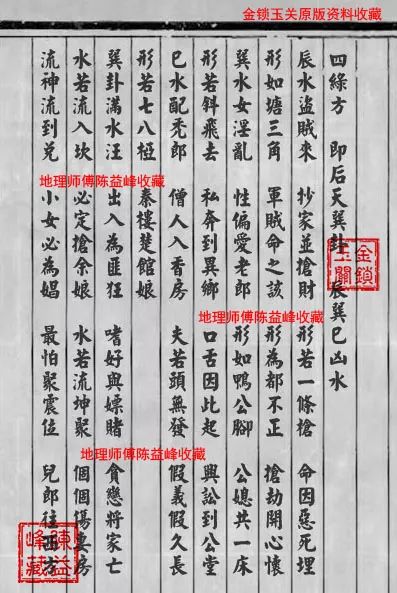 金锁玉关原版资料收藏
四綠方 即后天巽卦 辰巽巳山水
辰水盜賊來 抄家並搶財 形若一條搶 命因惡死埋
形如塘三角 軍賊命之該 形為都不正 搶劫開心懷
巽水女淫亂 性偏愛老郎 形如鴨公腳 公媳共一床
形若斜飛去 私奔到異鄉 口舌因此起 興訟到公堂
巳水配禿郎 僧人入香房 夫若頭無發 假義假久長
形若七八椏 秦樓楚館娘
巽卦滿水汪 出入為匪狂 嗜好與嫖賭 貪戀將家亡
水若流入坎 必定搶余娘 水若流坤聚 個個傷房
流神流到兌 小女必為娼 最怕聚震位 兒郎往西方
地理师傅陈益峰收藏
地理师傅陈益峰收藏
地理师傅陈益峰收藏
金鎖玉關
陳益峰藏